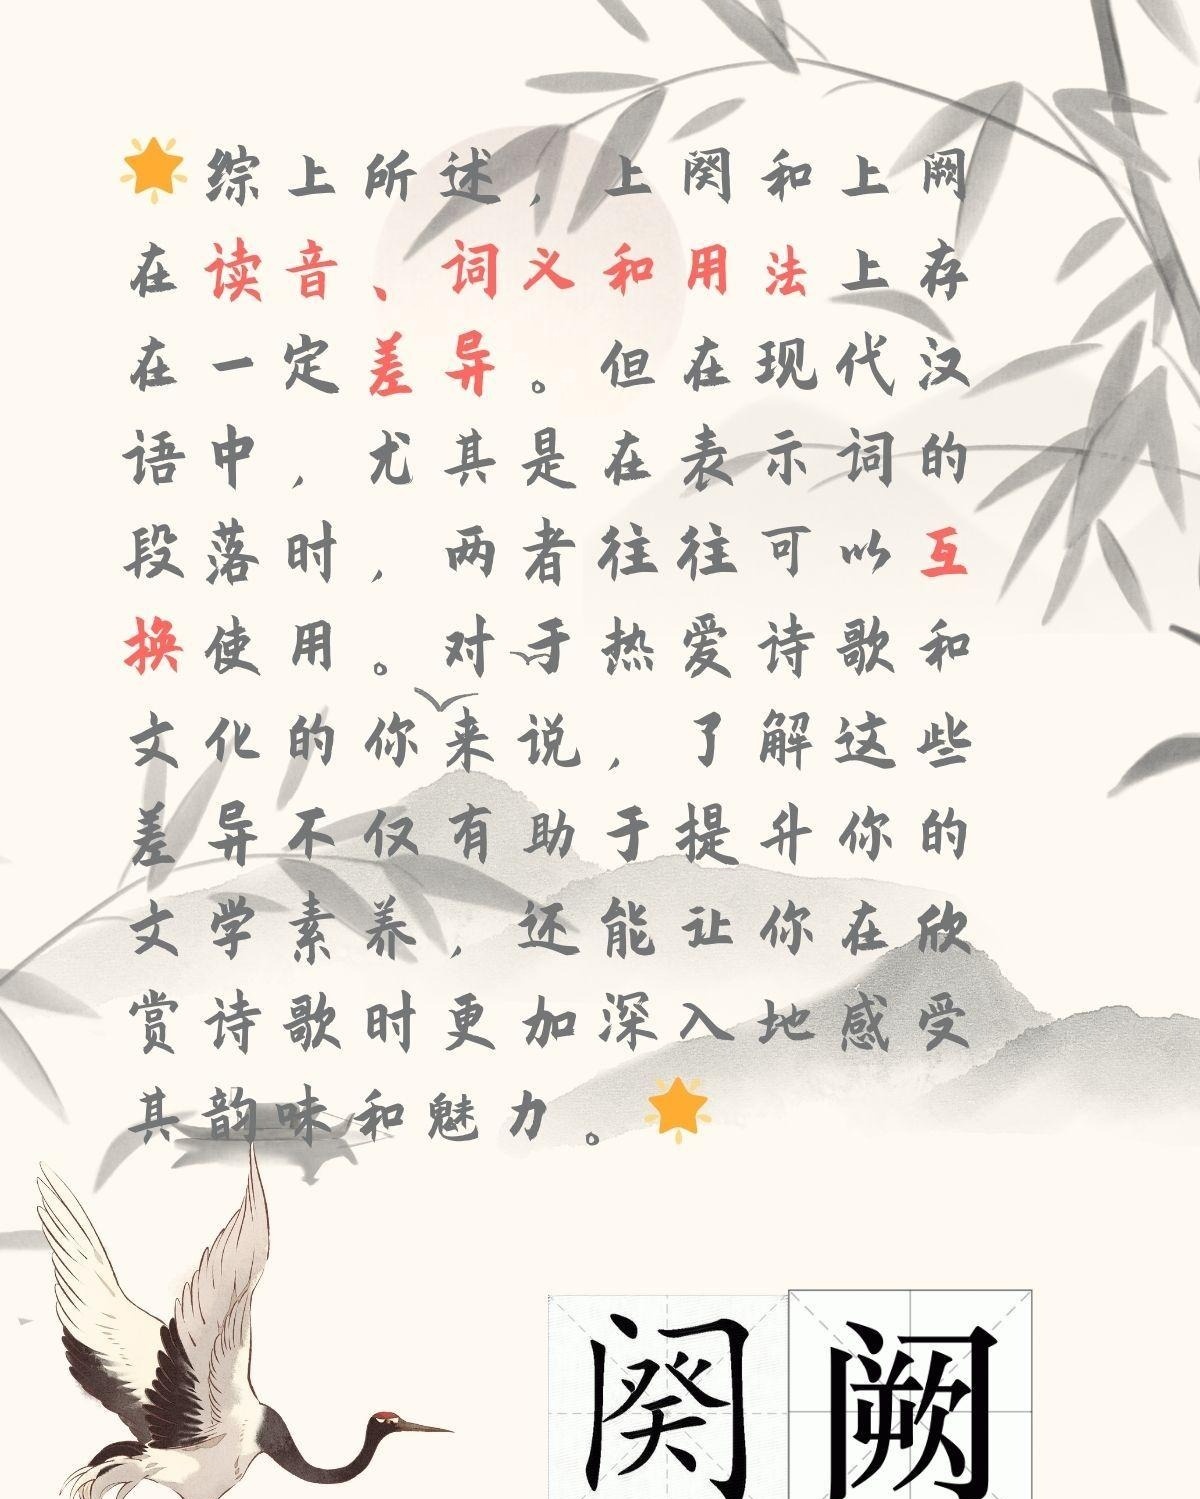 🌟综上所述，上阕和上阙
在读音、词义和用法上存
在一定差异。但在现代汉
语中，尤其是在表示词的
段落时，两者往往可以互
换使用。对于热爱诗歌和
文化的你来说，了解这些
差异不仅有助于提升你的
文学素养，还能让你在欣
赏诗歌时更加深入地感受
其韵味和魅力。🌟
阕 阙